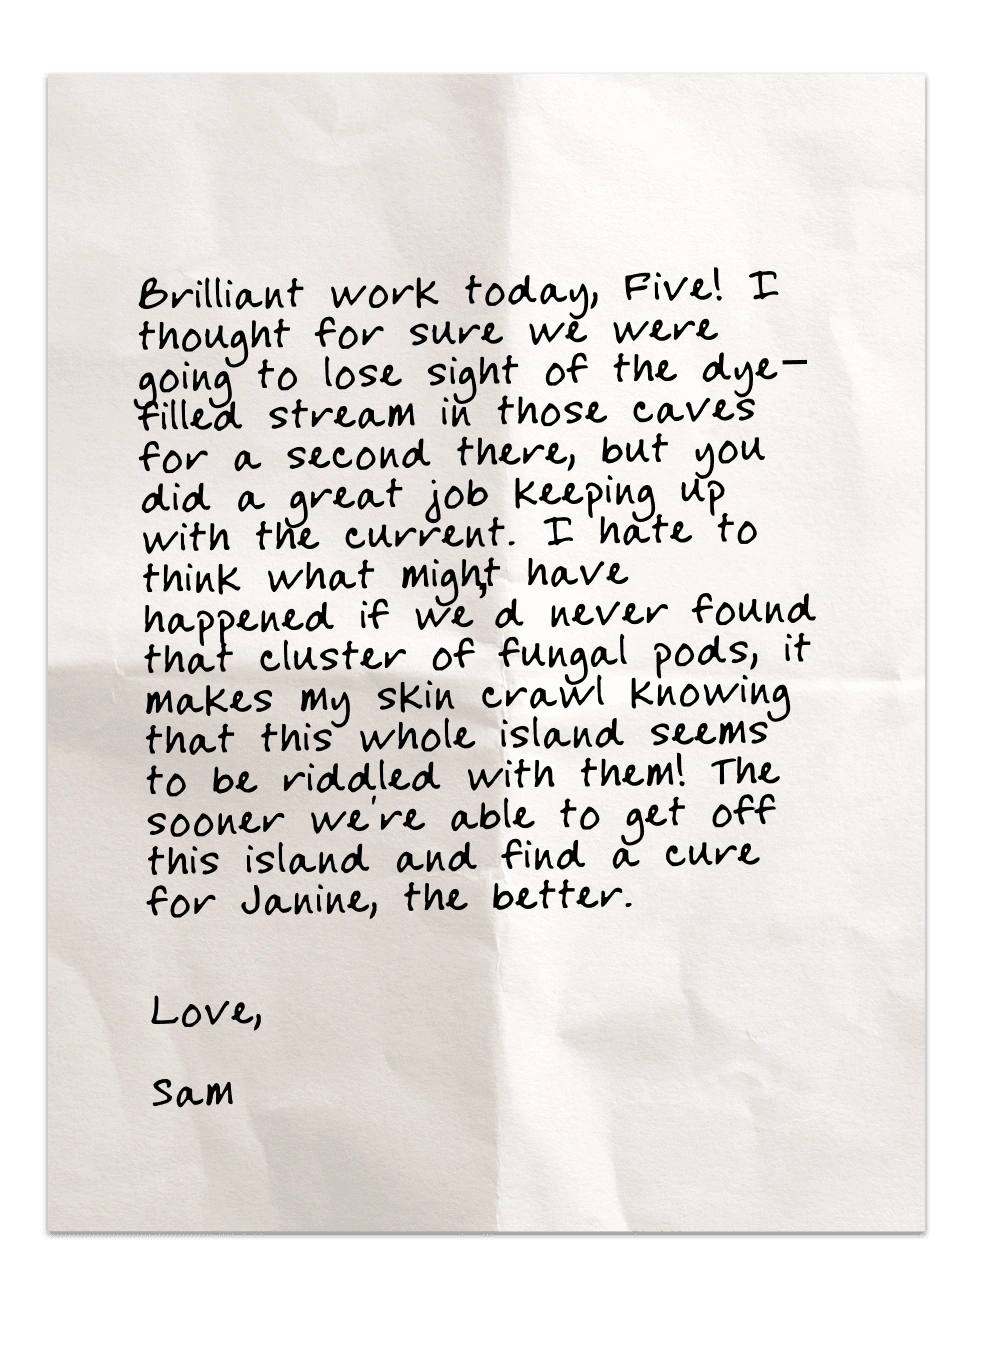 Brilliant work today, Five! I
thought for sure we were
going to lose sight of the dye-
filled stream in those caves
for a second there, but you
did a great job keeping up
with the current. I hate to
think what might have
happened if we'd never found
that cluster of fungal pods, it
makes my skin crawl knowing
that this whole island seems
to be riddled with them! The
sooner we're able to get off
this island and find a cure
for Janine, the better.
Love,
Sam